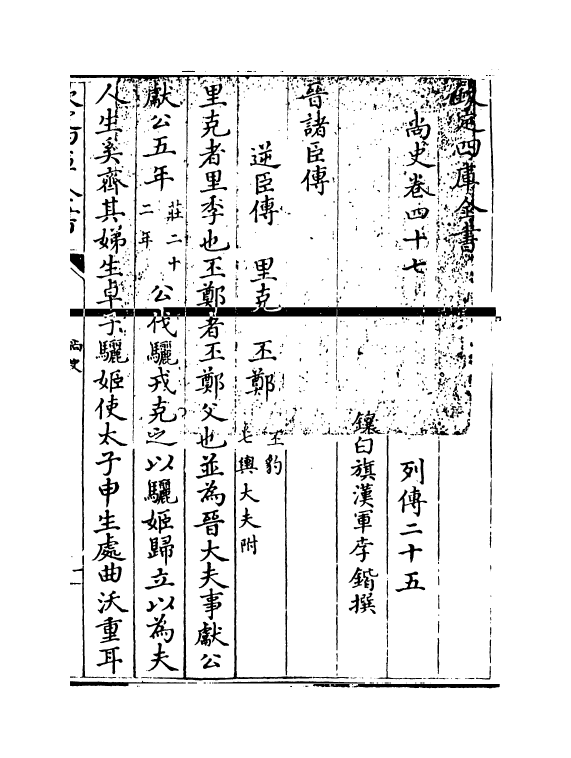 欽定四庫全書
尚史卷四十七
列傳二十五
鑲白旗漢軍李鍇撰
晉諸臣傳
逆臣傳　里克　丕鄭
丕豹
七輿大夫附
里克者里季也丕鄭者丕鄭父也並為晉大夫事獻公
獻公五年
莊二十
二年
公伐驪戎克之以驪姬歸立以為夫
人生奚齊其娣生卓子驪姬使太子申生處曲沃重耳
尚史